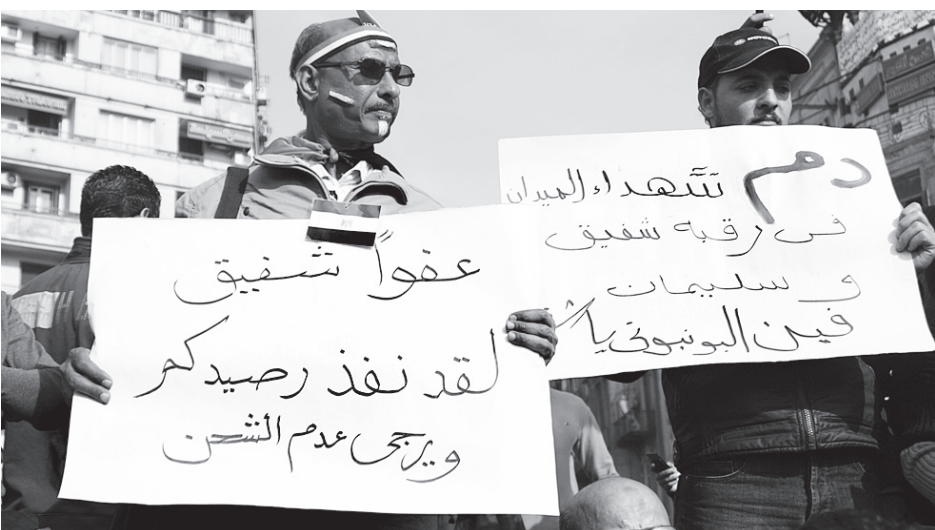 عفواً شفيق
لقد نفذ رصيدكم
ويرجى عدم الشحن
دم شهداء الميدان
فى رقبة شفيق
و سليمان
فين البونبونى يا